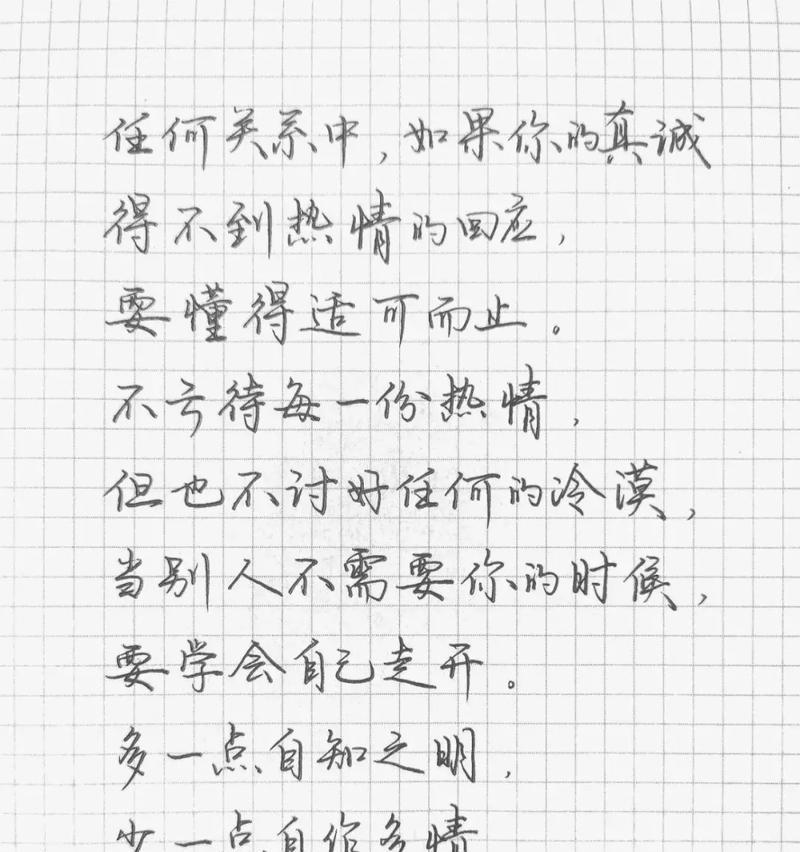 任何关系中,如果你的真诚
得不到热情的回应,
要懂得适可而止。
不亏待每一份热情,
但也不讨好任何的冷漠,
当别人不需要你的时候,
要学会自己走开。
多一点自知之明,
少一点自作多情